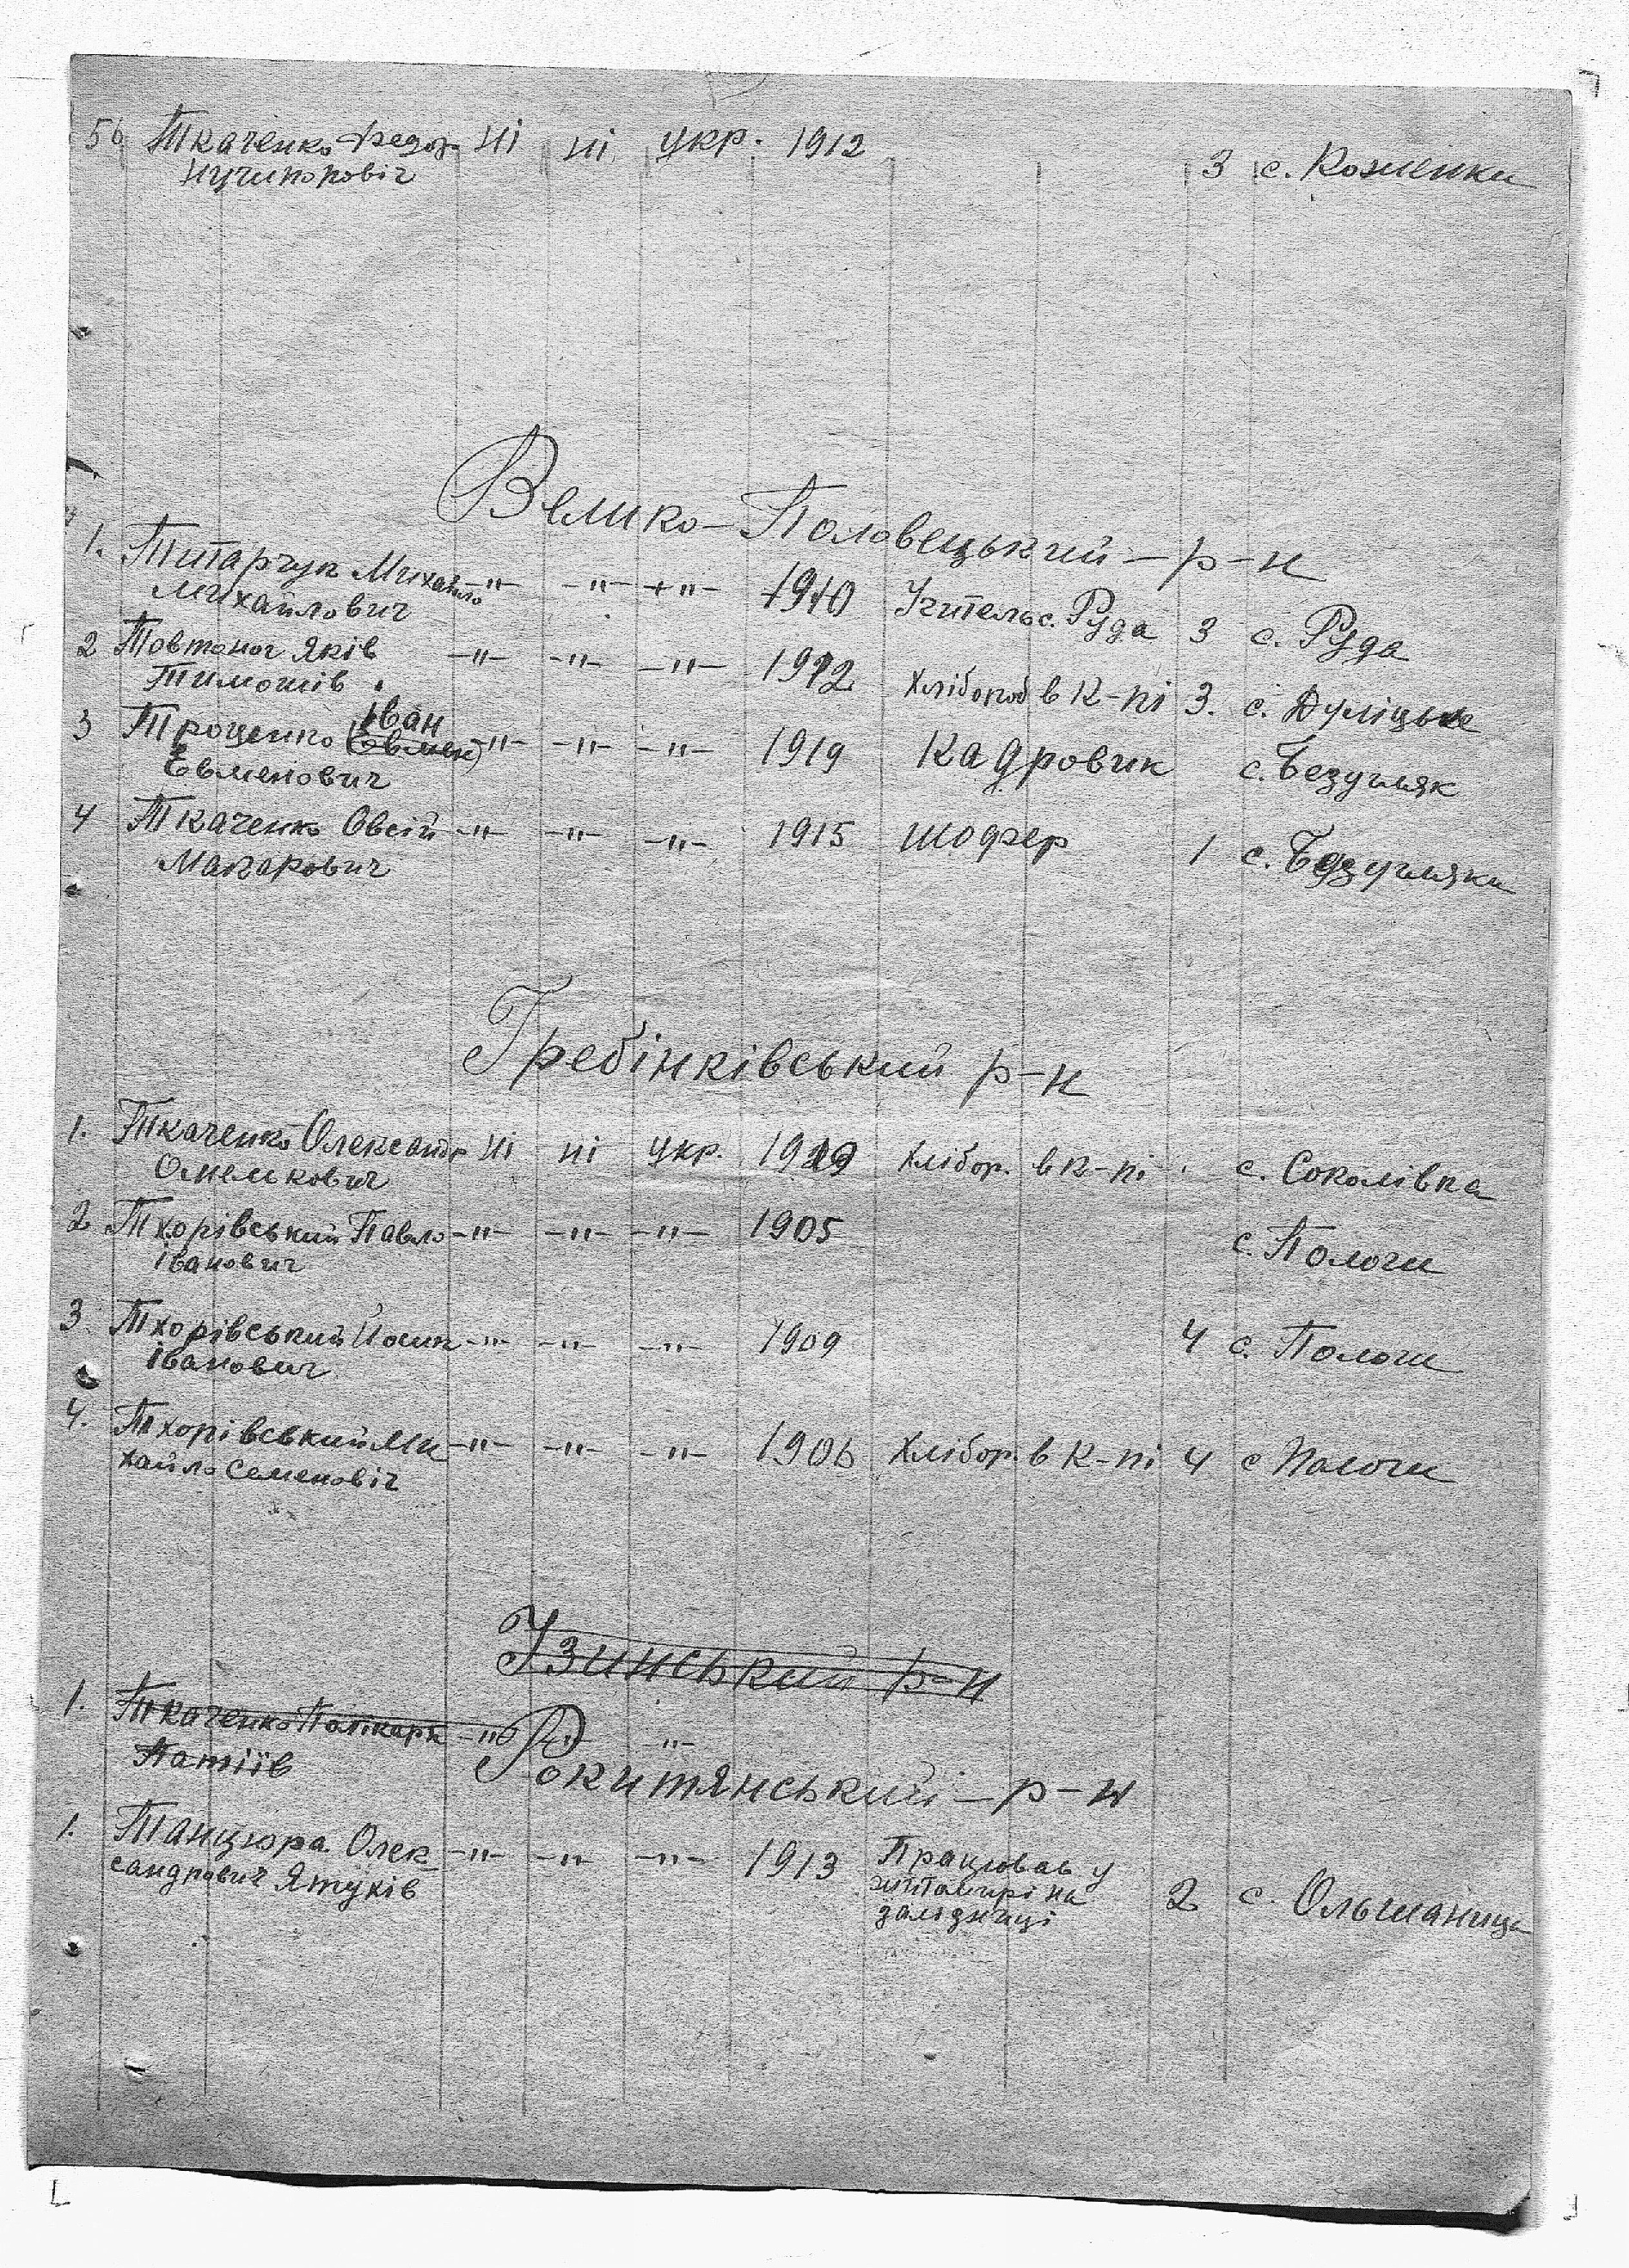 56 Ткаченко Федор ні ні укр. 1912 3 с. Кожленки
Нучипоровіч
Велико-Половецький-р-н
1. Титарчук Михайло -"- -"- -"- 1910 Учитель с. Руда 3 с. Руда
Михайлович
2 Товтоног Яків -"- -"- -"- 1912 Хлібороб в к-пі 3. с. Дуліцьке
Тимошів
3 Троценко Іван (Євмен) -"- -"- -"- 1919 Кадровик с. Безугляк
Євменович
4 Ткаченко Овсій -"- -"- -"- 1915 шофер 1 с. Безугляки
Макарович
Гребінківський р-н
1. Ткаченко Олександр ні ні укр. 1919 Хлібор. в к-пі с. Соколівка
Омелькович
2 Тхорівський Павло -"- -"- -"- 1905 с. Пологи
Іванович
3 Тхорівський Йосип -"- -"- -"- 1909 4 с. Пологи
Іванович
4. Тхорівський Ми -"- -"- -"- 1906 Хлібор. в к-пі 4 с Пологи
хайло Семеновіч
Узинський р-н
1. Ткаченко Полікарп -"- -"- -"-
Патіїв
Рокитянський-р-н
1. Танцюра Олек -"- -"- -"- 1913 Працював у
сандрович Ятухів житомирі на 2 с. Ольшаниця
залізниці